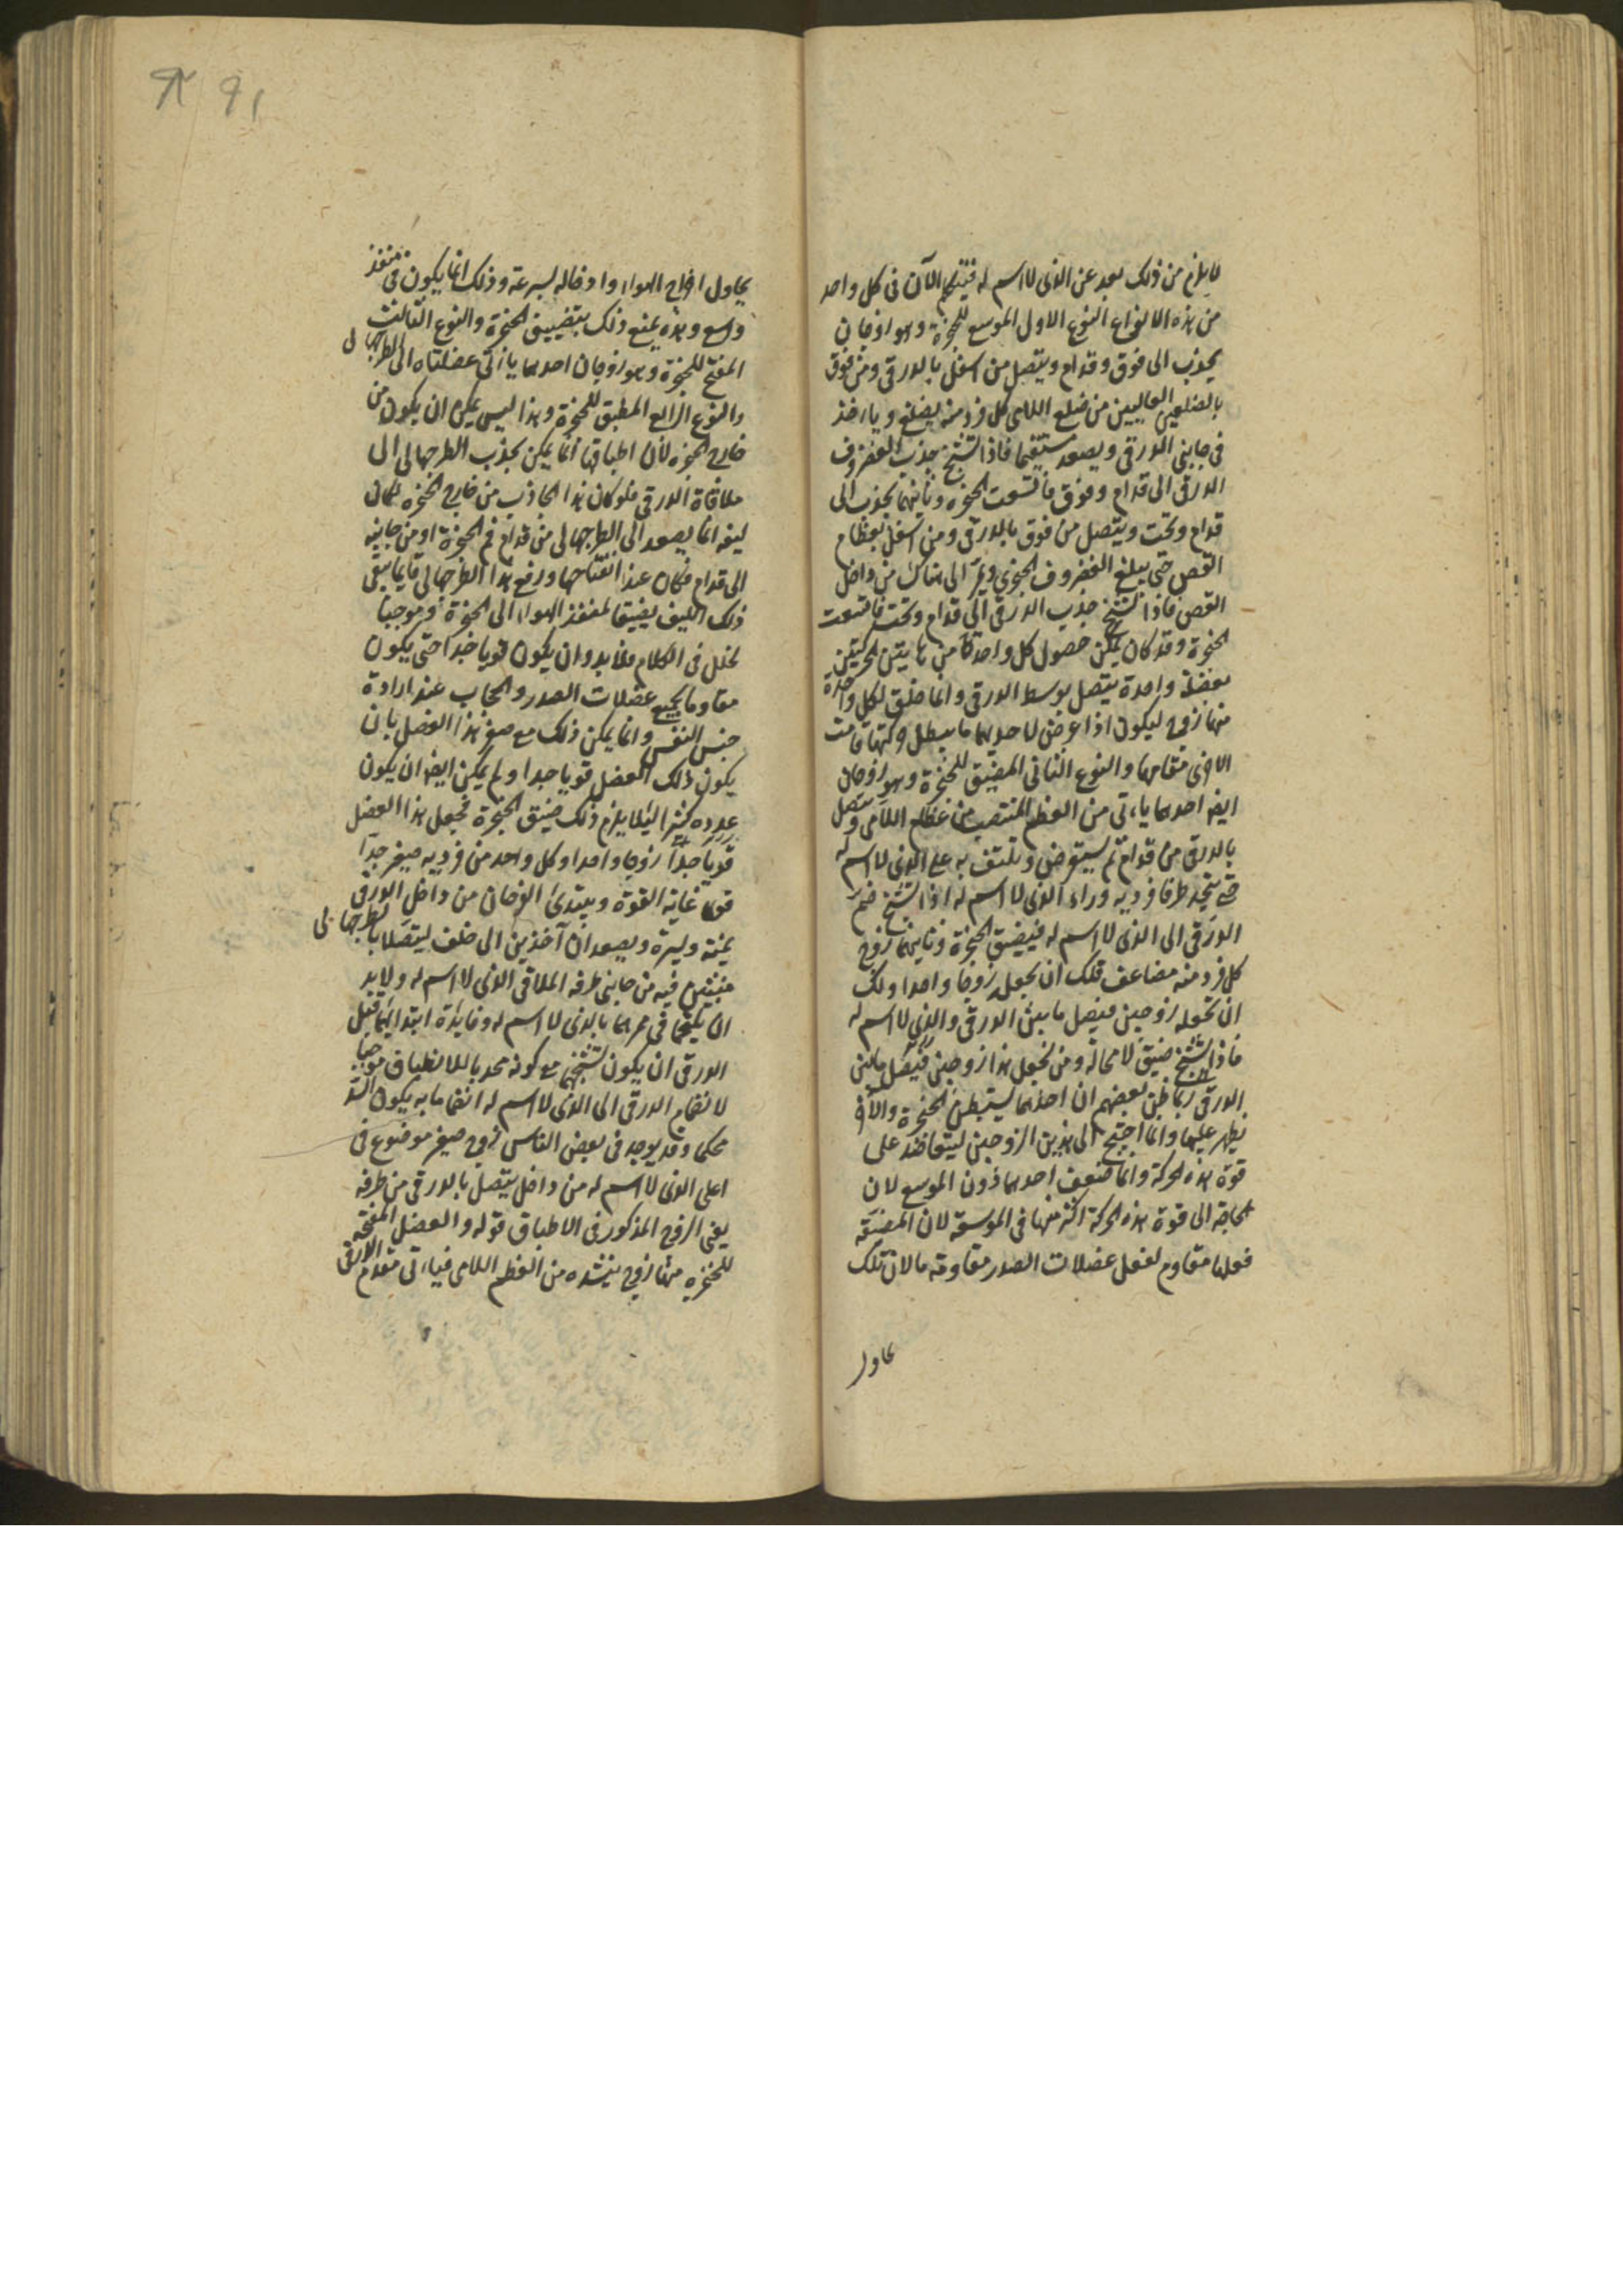 ما يلزم من ذلك بعد عن الذى لا اسم له فليتكلم الآن فى كل واحد
من هذه الانواع النوع الاول الموسع للحنجرة وهو زوجان
يجذب الى فوق وقدام ويتصل من اسفل بالدرقى ومن فوق
بالضلعين العاليين من ضلع اللامى كل فرد منه بضلع وياخذ
فى جانبى الدرقى ويصعد مستقيما فاذا تشنج جذب الغضروف
الدرقى الى قدام وفوق فاتسعت الحنجرة وثانيهما يجذب الى
قدام وتحت ويتصل من فوق بالدرقى ومن اسفل بعظام
القص حتى يبلغ الغضروف الحنجرى ويمر الى هناك من داخل
القص فاذا تشنج جذب الدرقى الى قدام وتحت فاتسعت
الحنجرة وقد كان يمكن حصول كل واحدة من هاتين الحركتين
بعضلة واحدة يتصل بوسط الدرقى وانما خلق لكل واحدة
منها زوج ليكون اذا عرض لاحديهما ما يبطل حركتها قامت
الاخرى مقامها والنوع الثانى المضيق للحنجرة وهو زوجان
ايضا احدهما ياتى من العظم المنتصب من عظام اللامى ويتصل
بالدرقى من قدام ثم يستعرض ويلتف به على الذى لا اسم له
حتى يتحد طرفا فرديه وراء الذى لا اسم له اذا تشنج ضم
الدرقى الى الذى لا اسم له فيضيق الحنجرة وثانيهما زوج
كل فرد منه مضاعف فلك ان تجعله زوجا واحدا ولك
ان تجعله زوجين فيصل ما بين الدرقى والذى لا اسم له
فاذا تشنج ضيق لا محالة ومن تجعل هذا زوجين فيصل ما بين
الدرقى ربما ظن بعضهم ان احدهما يستبطن الحنجرة والآخر
يظهر عليها وانما احتيج الى هذين الزوجين ليتعاضد على
قوة هذه الحركة وانما ضوعف احدهما دون الموسع لان
الحاجة الى قوة هذه الحركة اكثر منها فى الموسعة لان المضيقة
فعلها مقاوم لفعل عضلات الصدر مقاومة ما لان تلك
يحاول
يحاول اخراج الهواء وادخاله بسرعة وذلك انما يكون فى منفذ
واسع وهذه يمنع ذلك بتضييق الحنجرة والنوع الثالث
المفتح للحنجرة وهو زوجان احدهما ياتى عضلتاه الى الطرجهالى
والنوع الرابع المطبق للحنجرة وهذا ليس يمكن ان يكون من
خارج الحنجرة لان اطباقها انما يمكن بجذب الطرجهالى الى
ملاقاة الدرقى فلو كان هذا الجاذب من خارج الحنجرة لكان
ليفه انما يصعد الى الطرجهالى من قدام فم الحنجرة او من جانبيه
الى قدام فكان عند انفتاحها ورفع هذا الطرجهالى قايما يبقى
ذلك الليف مضيقا لمنفذ الهواء الى الحنجرة وموجبا
لخلل فى الكلام فلا بد وان يكون قويا جدا حتى يكون
مقاوما لجميع عضلات الصدر والحجاب عند ارادة
حبس النفس وانما يمكن ذلك مع صغر هذا العضل بان
يكون ذلك العضل قويا جدا ولم يمكن ايضا ان يكون
عدده كثيرا لئلا يلزم ذلك ضيق الحنجرة فجعل هذا العضل
قويا جدا زوجا واحدا وكل واحد من فرديه صغير جدا
قوى غاية القوة ويبتدى الزوجان من داخل الدرقى
يمنة ويسرة ويصعدان آخذين الى خلف ليتصلا بالطرجهالى
منبثين فيه من جانبى طرفه الملاقى الذى لا اسم له ولا بد
ان يلتقيا فى ممرهما بالذى لا اسم له وفايدة ابتدايهما قبل
الدرقى ان يكون تشنجهما مع كونه محدبا للانطباق موجبا
لانضمام الدرقى الى الذى لا اسم له انضماما به يكون السد
محكما وقد يوجد فى بعض الناس زوج صغير موضوع فى
اعلى الذى لا اسم له من داخل يتصل بالدرقى من طرفه
يعنى الزوج المذكور فى الاطباق قوله والعضل المفتحة
للحنجرة منها زوج ينشؤ من العظم اللامى فياتى مقدم الدرقى